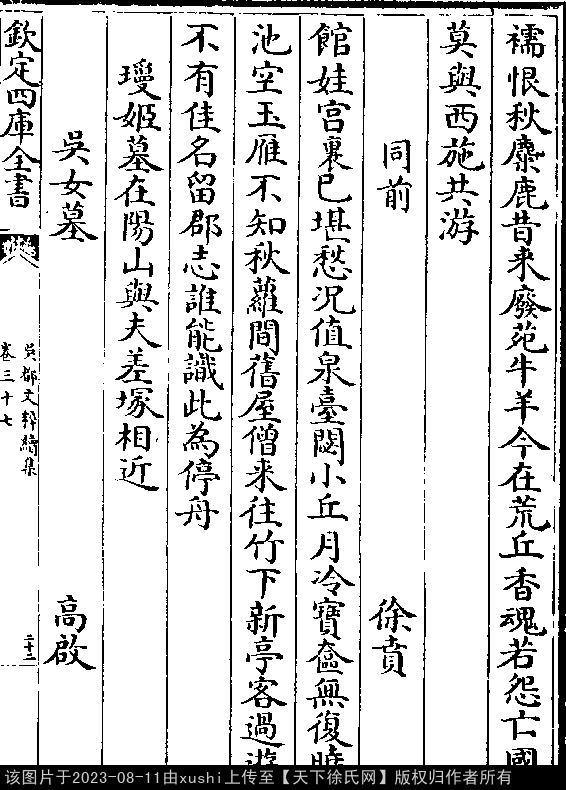 襦恨秋麋鹿昔来廢苑牛羊今在荒丘香魂若怨亡國
莫與西施共游
同前 徐賁
館娃宫裏已堪愁况值泉臺閟小丘月冷寶奩無復曉
池空玉雁不知秋蘿間舊屋僧来往竹下新亭客過遊
不有佳名留郡志誰能識此為停舟
璦姬墓在陽山與夫差塚相近
吳女墓 高啟
欽定四庫全書
吳都文粹續集
卷三十七
二十二
该图片于2023-08-11由xushi上传至【天下徐氏网】版权归作者所有